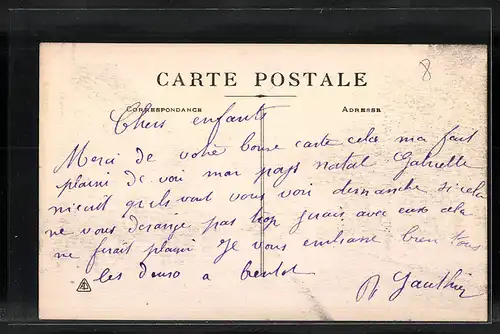 8
CARTE POSTALE
CORRESPONDANCE
ADRESSE
Chers enfants
Merci de votre bonne carte cela ma fait
plaisi de voir mon pays natal Gabrielle
m'ecrit qu'ils vont vous voir dimanche si cela
ne vous derange pas trop j'irais avec eux cela
me ferait plaisi Je vous embrasse bien tous
les deux a bientot
Gauthier